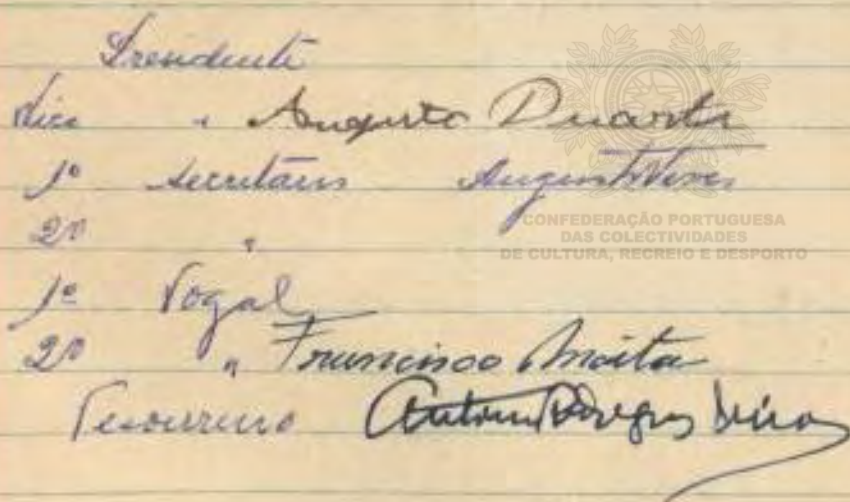 Presidente
Vice " Augusto Duarte
1º Secretário Augusto Neves
CONFEDERAÇÃO PORTUGUESA
DAS COLECTIVIDADES
DE CULTURA, RECREIO E DESPORTO
2º "
1º Vogal
2º " Francisco Moita
Tesoureiro